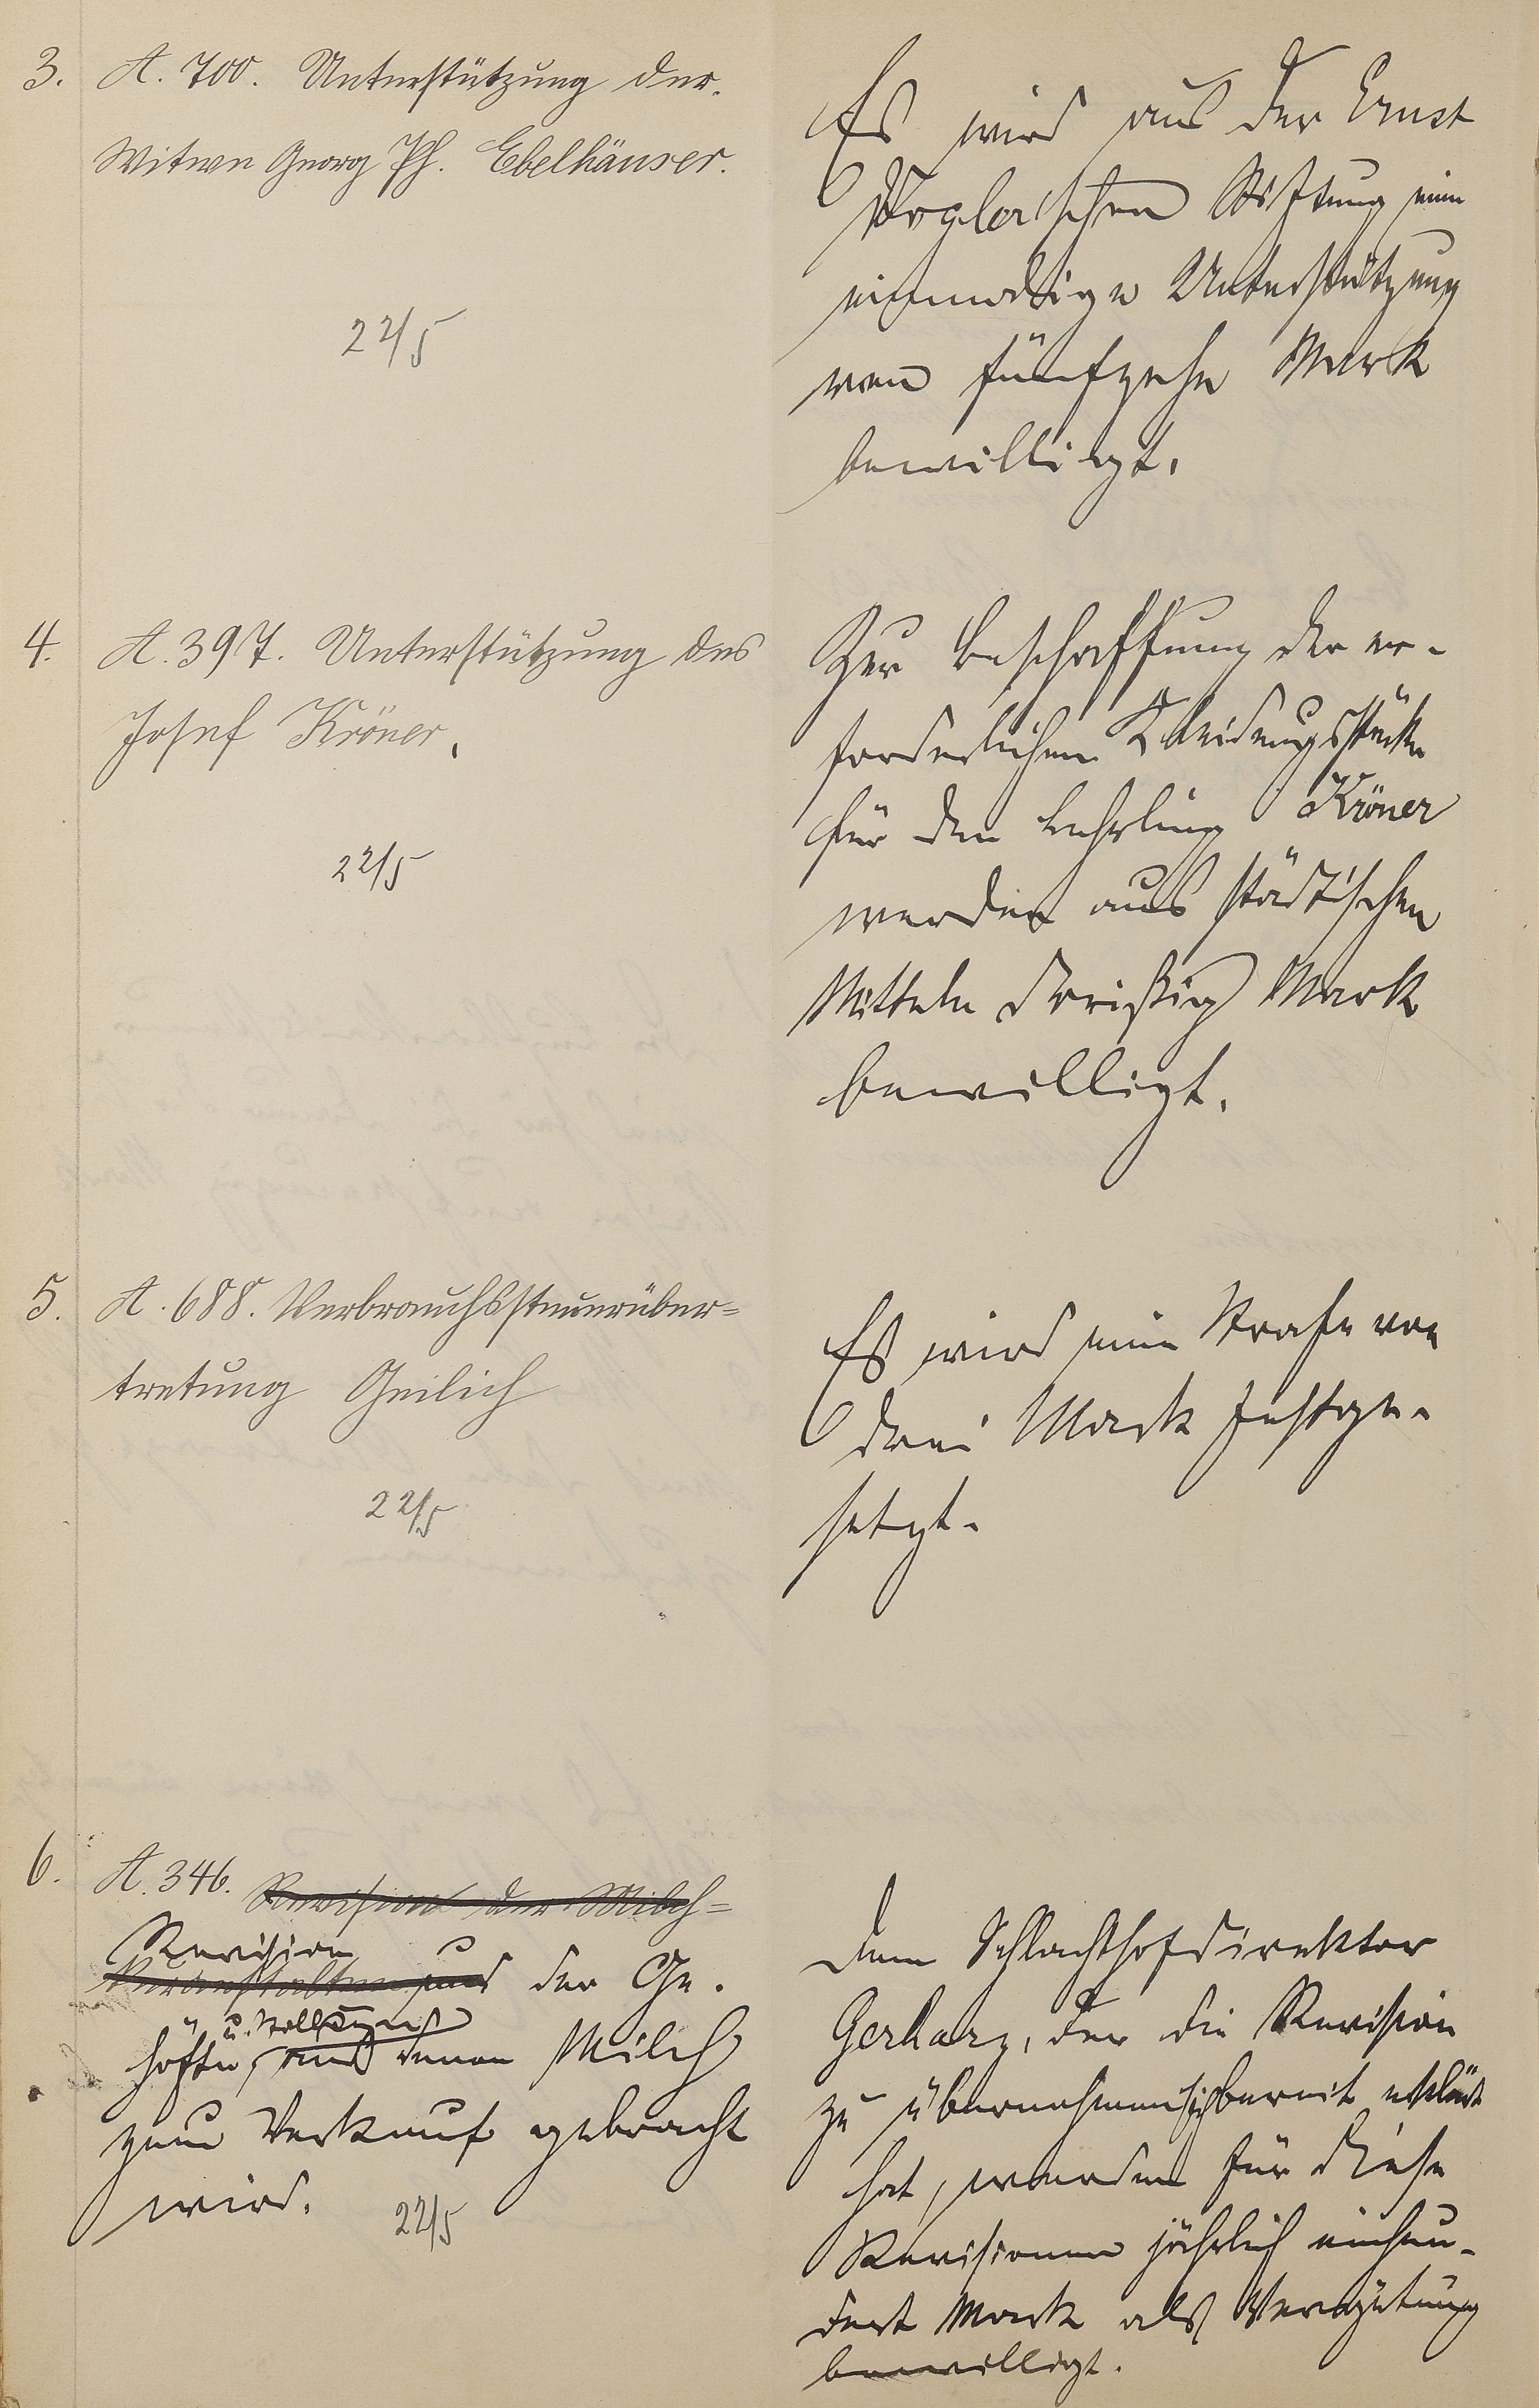 3. A. 700. Unterstützung der
Witwe Georg Ph. Ebelhäuser.
22/5
Es wird aus der Ernst
Vogler'schen Stiftung eine
einmalige Unterstützung
von fünfzehn Mark
bewilligt.
4. A. 397. Unterstützung des
Josef Kröner.
22/5
Zur Beschaffung der er-
forderlichen Kleidungsstücke
für den Lehrling Kröner
werden aus städtischen
Mitteln dreißig Mark
bewilligt.
5. A. 688. Verbrauchssteuerüber=
tretung Geilich
22/5
Es wird eine Strafe von
drei Mark festge-
setzt.
6. A. 346. Revision der Milch=
Revision
der Ge-
höfte, aus denen Milch
zum Verkauf gebracht
wird.
22/5
Dem Schlachthofdirektor
Gerharz, der die Revision
zu übernehmen sich bereit erklärt
hat, werden für diese
Revisionen jährlich einhun-
dert Mark als Vergütung
bewilligt.